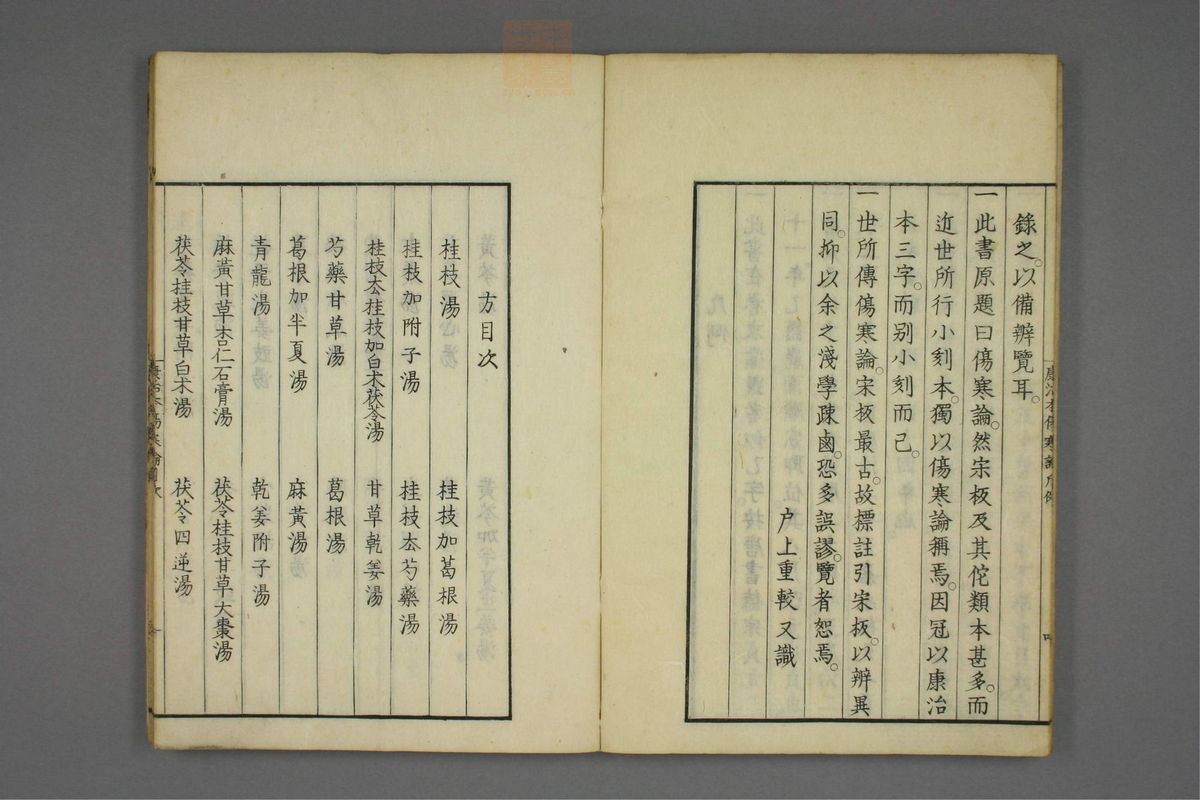 錄之。以備辨覽耳。
一此書原題曰傷寒論。然宋板及其佗類本甚多。而
近世所行小刻本。獨以傷寒論稱焉。因冠以康治
本三字。而别小刻而已。
一世所傳傷寒論。宋板最古。故標註引宋板。以辨異
同。抑以余之淺學疎鹵。恐多誤謬。覽者恕焉。
户上重較又識
方目次
桂枝湯
桂枝加葛根湯
桂枝加附子湯
桂枝厺芍藥湯
桂枝厺桂枝加白朮茯苓湯
甘草乾姜湯
芍藥甘草湯
葛根湯
葛根加半夏湯
麻黃湯
青龍湯
乾姜附子湯
麻黃甘草杏仁石膏湯
茯苓桂枝甘草大棗湯
茯苓桂枝甘草白朮湯
茯苓四逆湯